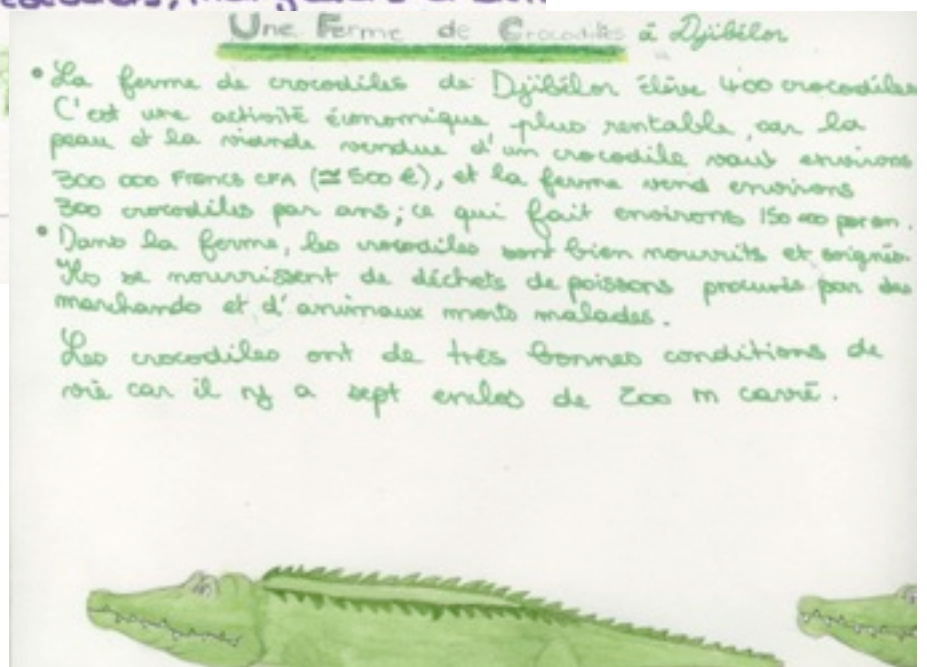 Une Ferme de Crocodiles à Djibélor
• La ferme de crocodiles de Djibélor élève 400 crocodiles
C'est une activité économique plus rentable, car la
peau et la viande vendue d'un crocodile vaut environs
300 000 Francs CFA (≃ 500 €), et la ferme vend environs
300 crocodiles par ans; ce qui fait environs 150 000 par an.
• Dans la ferme, les crocodiles sont bien nourrits et soignés.
Ils se nourrissent de déchets de poissons procurés par des
marchands et d'animaux morts malades.
Les crocodiles ont de très bonnes conditions de
vie car il ny a sept enclos de 200 m carré.